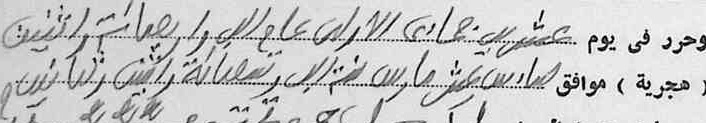 وحرر فى يوم عشرين جمادى الاولى عام الف واربعمائة واثنين
( هجرية ) موافق سادس عشر مارس سنة الف وتسعمائة واثنين وثمانين م